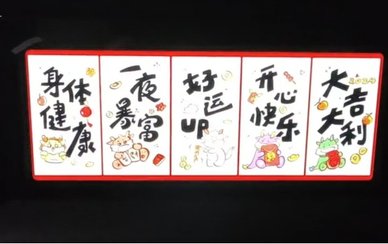 身体健康
一夜暴富
好运UP
开心快乐
大吉大利